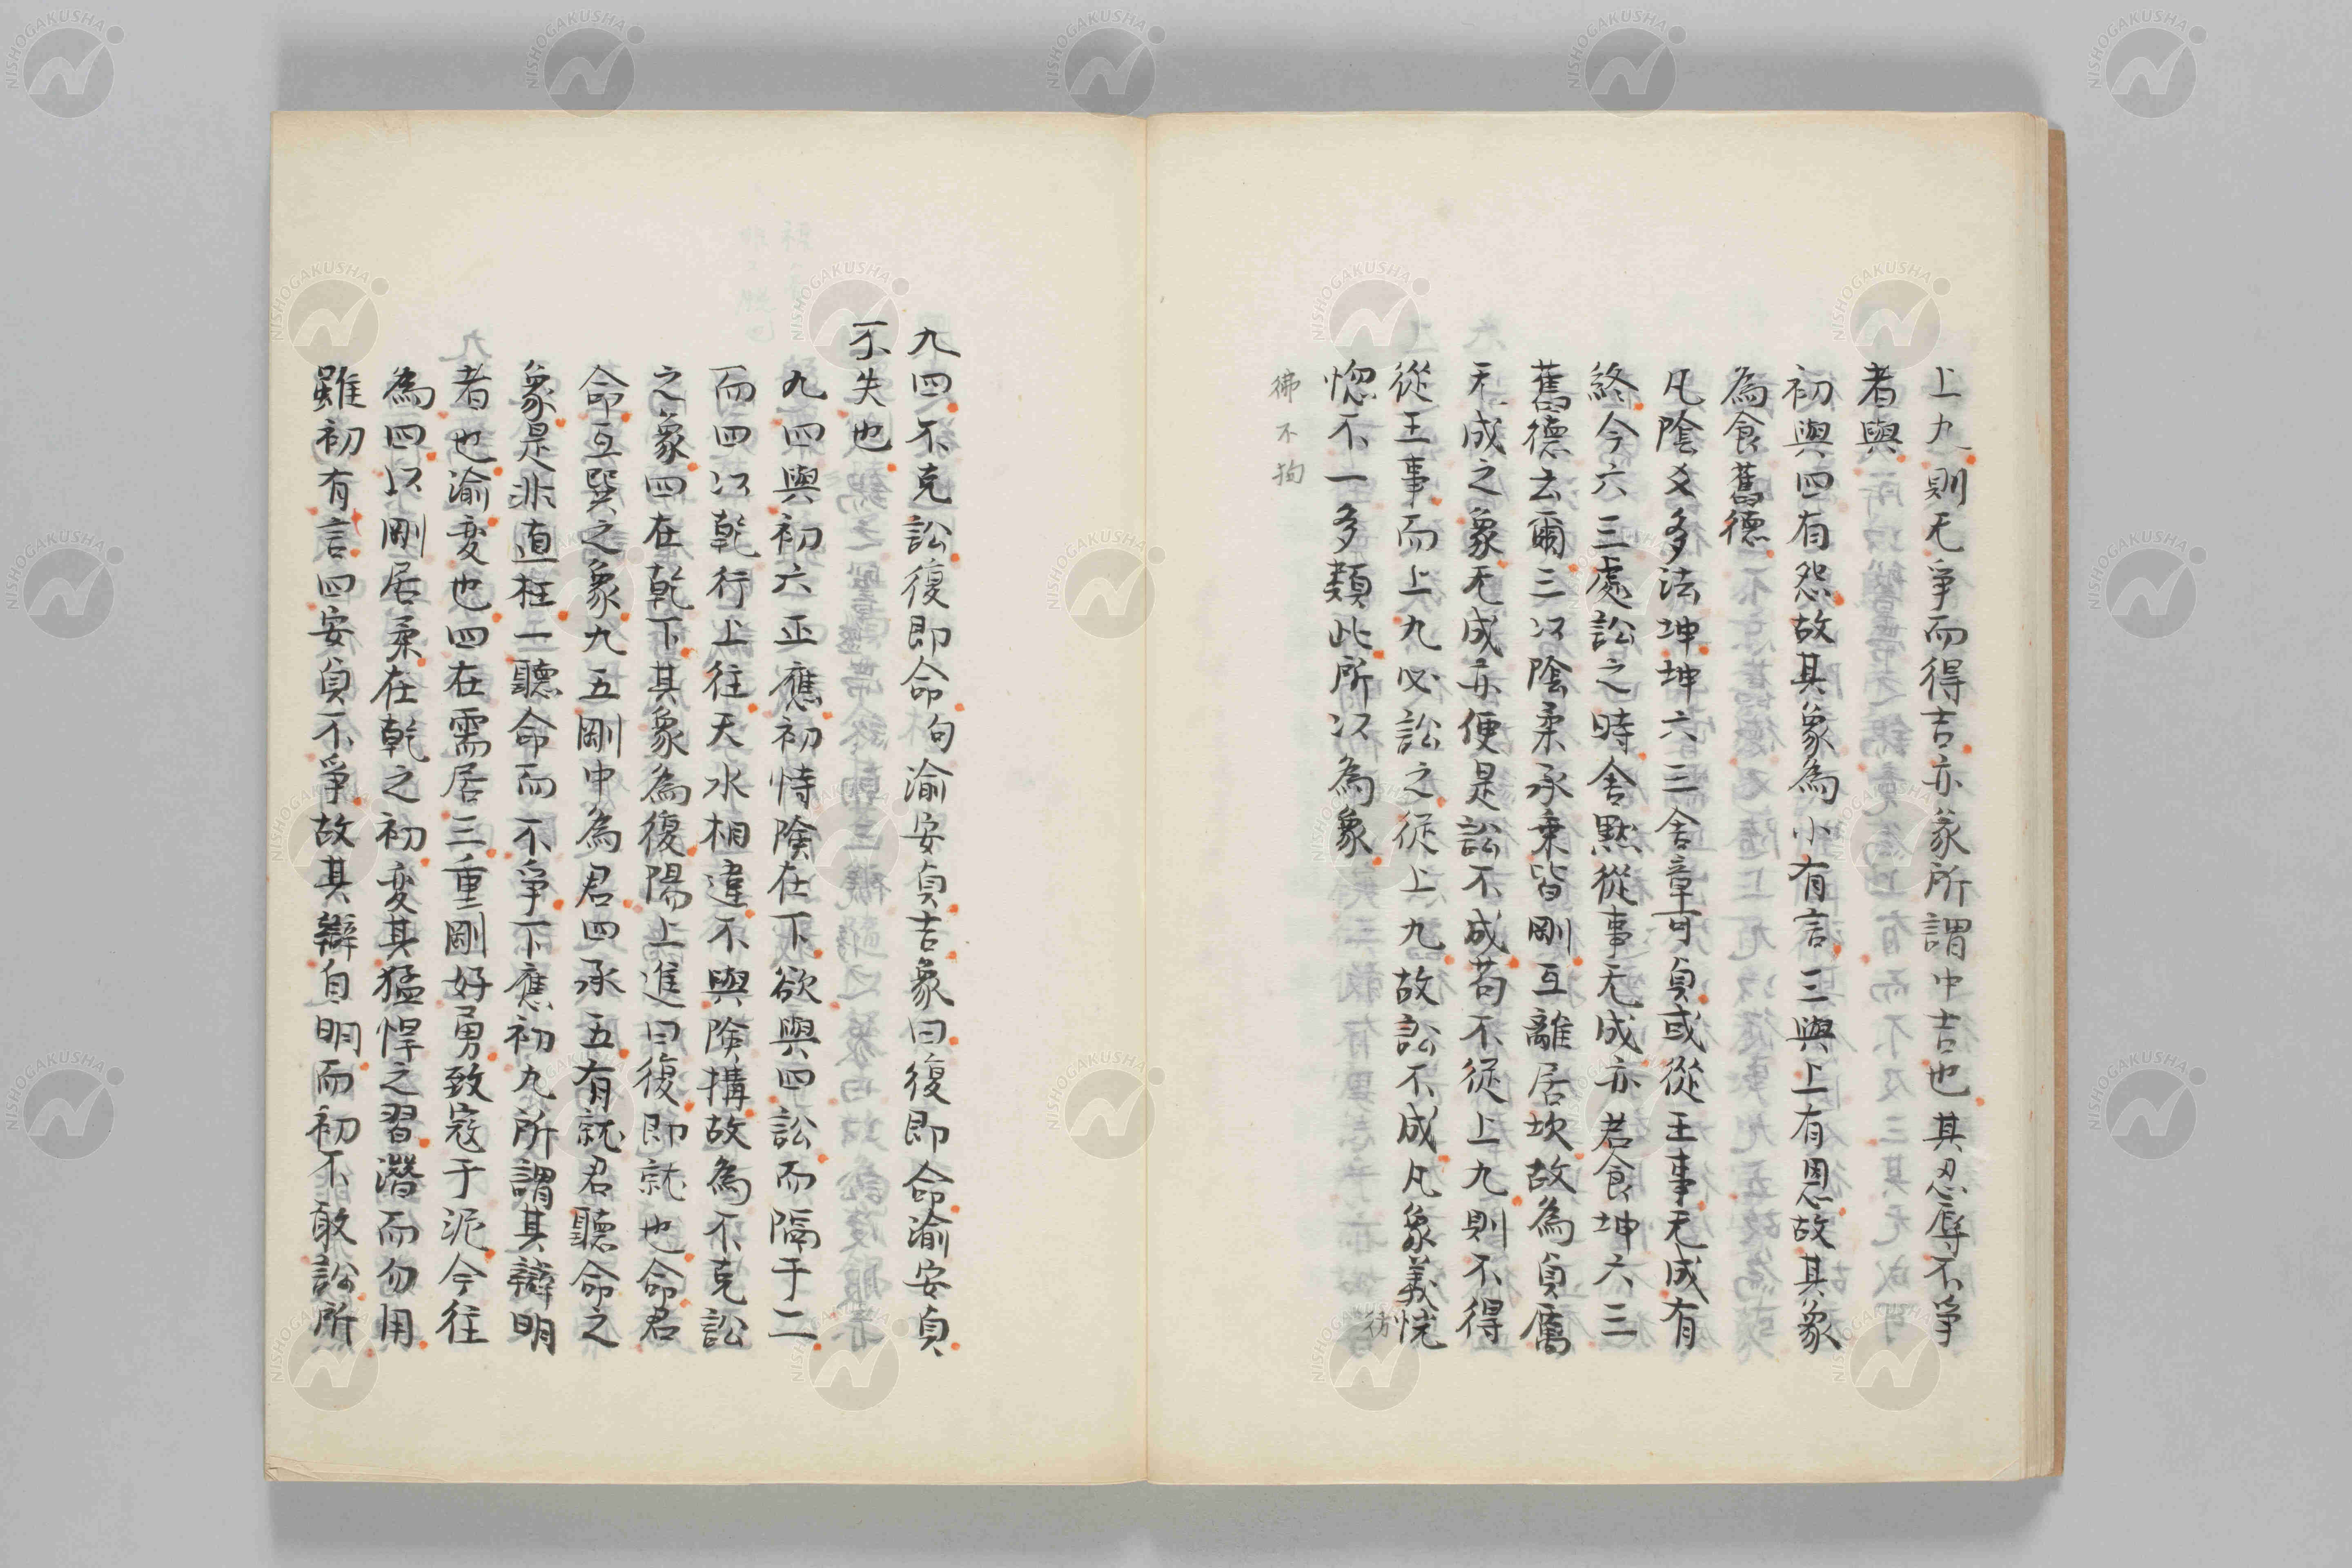 上九則无爭而得吉亦彖所謂中吉也其忍辱不爭
者與
初與四有怨故其象為小有言三與上有恩故其象
為食舊德
凡陰爻多法坤坤六三含章可貞或從王事无成有
終今六三處訟之時舍黙從事无成亦君食坤六三
舊德云爾三以陰柔承乗皆剛互離居坎故為貞厲
无成之象无成亦便是訟不成苟不從上九則不得
從王事而上九必訟之從上九故訟不成凡象義恍
惚不一多類此所以為象
彷
彿不拘
九四不克訟復即命句渝安貞吉象曰復即命渝安貞
不失也
九四與初六正應初恃険在下欲與四訟而隔于二
而四以乾行上往天水相違不與険搆故為不克訟
之象四在乾下其象為復陽上進曰復即就也命君
命互巽之象九五剛中為君四承五有就君聽命之
象是非直枉一聽命而不爭下應初九所謂其辯明
者也渝変也四在需居三重剛好勇致寇于泥今往
為四以剛居柔在乾之初変其猛悍之習潛而勿用
雖初有言四安貞不爭故其辯自明而初不敢訟所
NISHOGAKUSHA